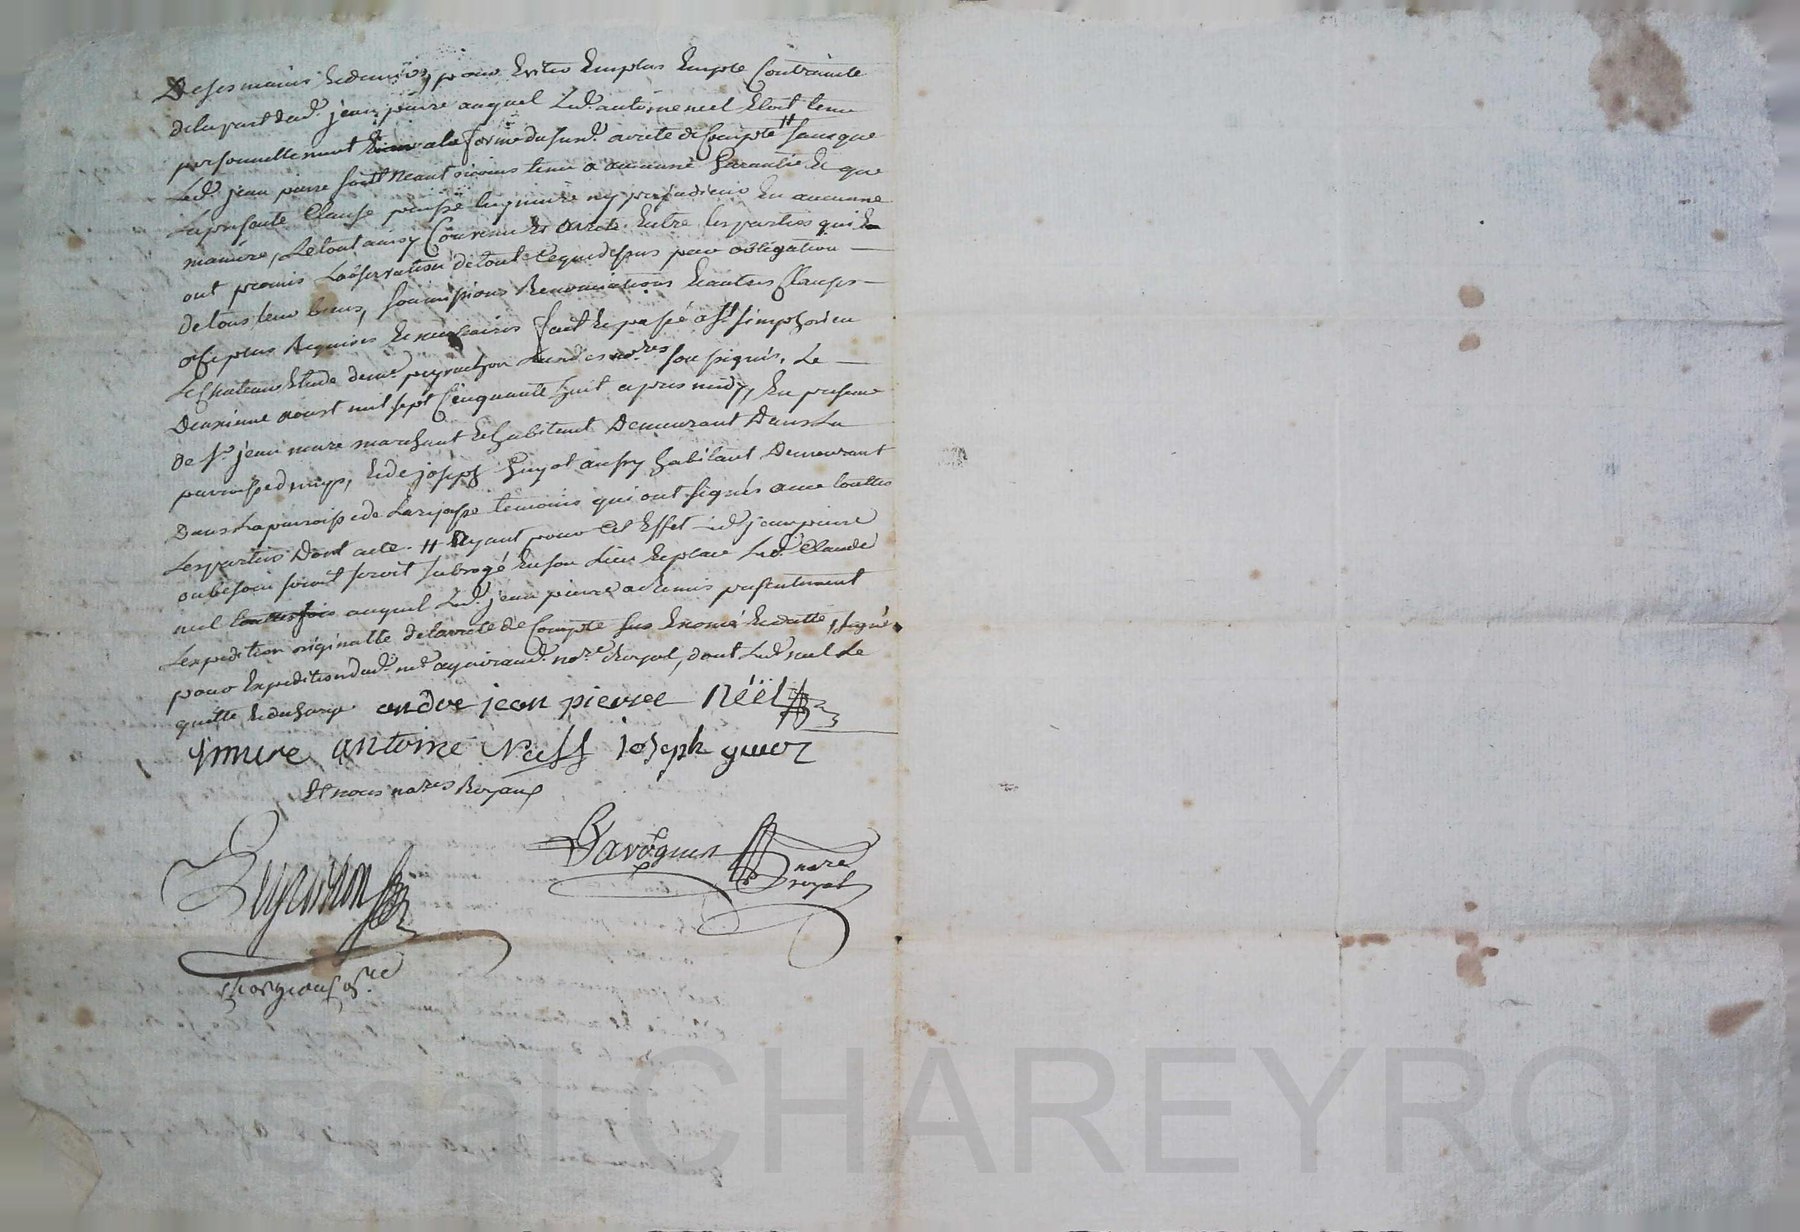 De ses mains & deniers, pour eviter Emplus Emple Contrainte
de la part dud. jean pierre auquel Led. antoine neel Etoit tenu
personnellement a la forme du susd. arrete de Compte # sans que
Led. jean pierre soit neantmoins tenu a aucune Garantie Et que
La presente Clause puisse luy nuire ny prejudicier En aucune
maniere, Le tout ainsy Convenu Et arreté Entre les parties qui En
ont promis Lobservation de tout Ce que dessus pour obligation
de tous leur biens, soumissions Renonciations & autres Clauses
a ce plus Requises & necessaires fait & passé a St simphorien
Le Chateau Etude de me. peyrachon Lun des no.res soussignés, Le
Deuxieme aoust mil sept Cinquante huit apres midy, En presence
de sr. jean mure marchant & habitant Demeurant Dans La
parroisse de, & de joseph Guyot aussy habitant Demeurant
Dans La parroisse de Larajasse temoins qui ont signés avec touttes
Les parties Dont acte. # Ayant pour Cet Effet led. jean pierre
au besoin seroit subrogé En son Lieu & place Led. Claude
neel auquel Led. jean pierre a Remis presentement
Lexpedition originalle de larreté de Compte sus Enoncé & datté, signé
pour Expedition dud. me. no.re Royal, dont Led. neel Le
quitte & decharge andre jean pierre Nëël
jmure antoine Neel joseph guiot
Et nous no.res Royaux
Peyrachon
no.re royal